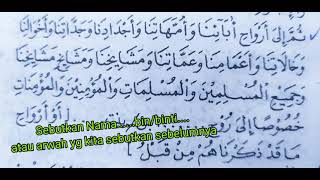 ثُمَّ إِلَى أَرْوَاحِ أٰبَآئِنَا وَأُمَّهَاتِنَا وَأَجْدَادِنَا وَجَدَّاتِنَا وَأَخْوَالِنَا
وَخَالَاتِنَا وَأَعْمَامِنَا وَعَمَّاتِنَا وَمَشَايِخِنَا وَمَشَايِخِ مَشَايِخِنَا
وَجَمِيْعِ الْمُسْلِمِيْنَ وَالْمُسْلِمَاتِ وَالْمُؤْمِنِيْنَ وَالْمُؤْمِنَاتِ
خُصُوْصًا إِلَى رُوْحِ [أَوْ أَرْوَاحِ
مَا قَدْ ذَكَرْنَاهُمْ مِنْ قَبْلُ
Sebutkan Nama.....bin/binti....
atau arwah yg kita sebutkan sebelumnya